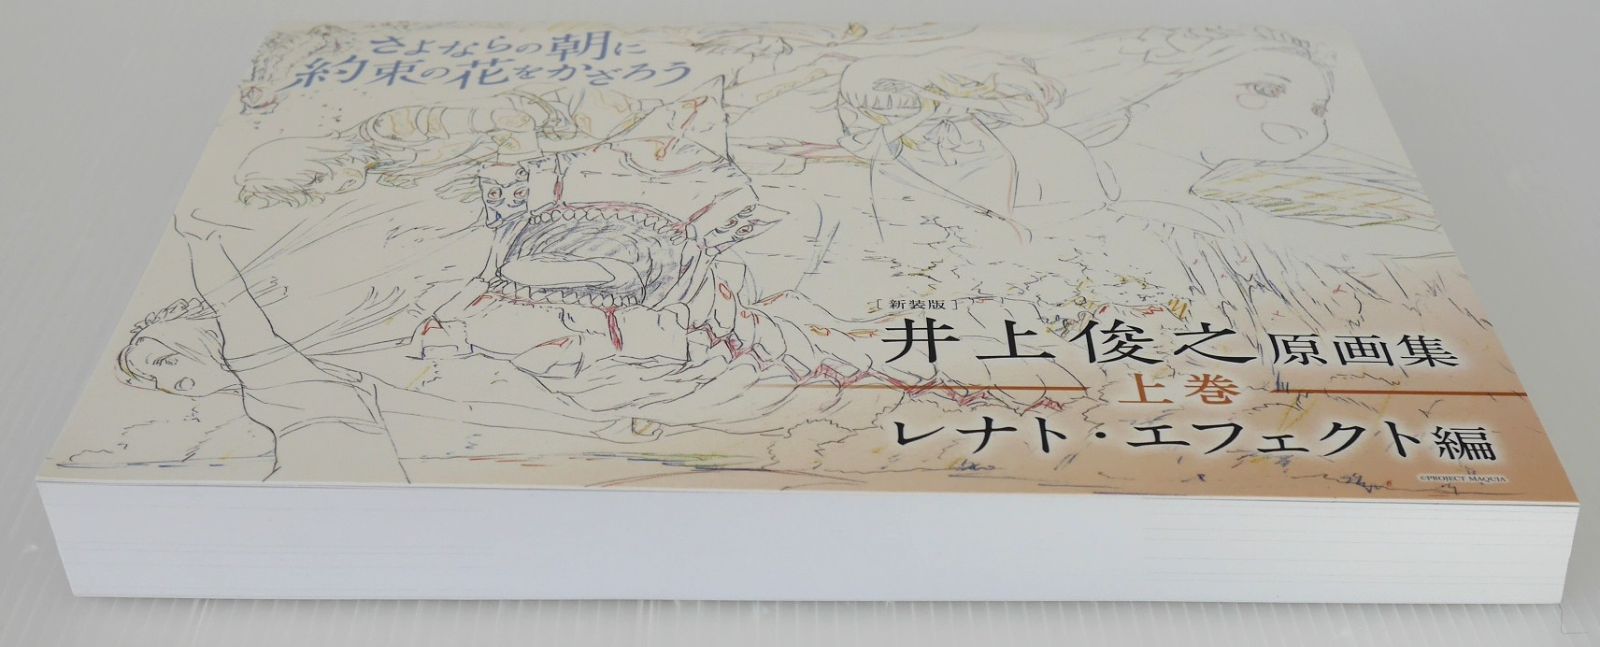 さよならの朝に
約束の花をかざろう
[新装版]
井上俊之原画集
上巻
レナト・エフェクト編
©PROJECT MAQUIA